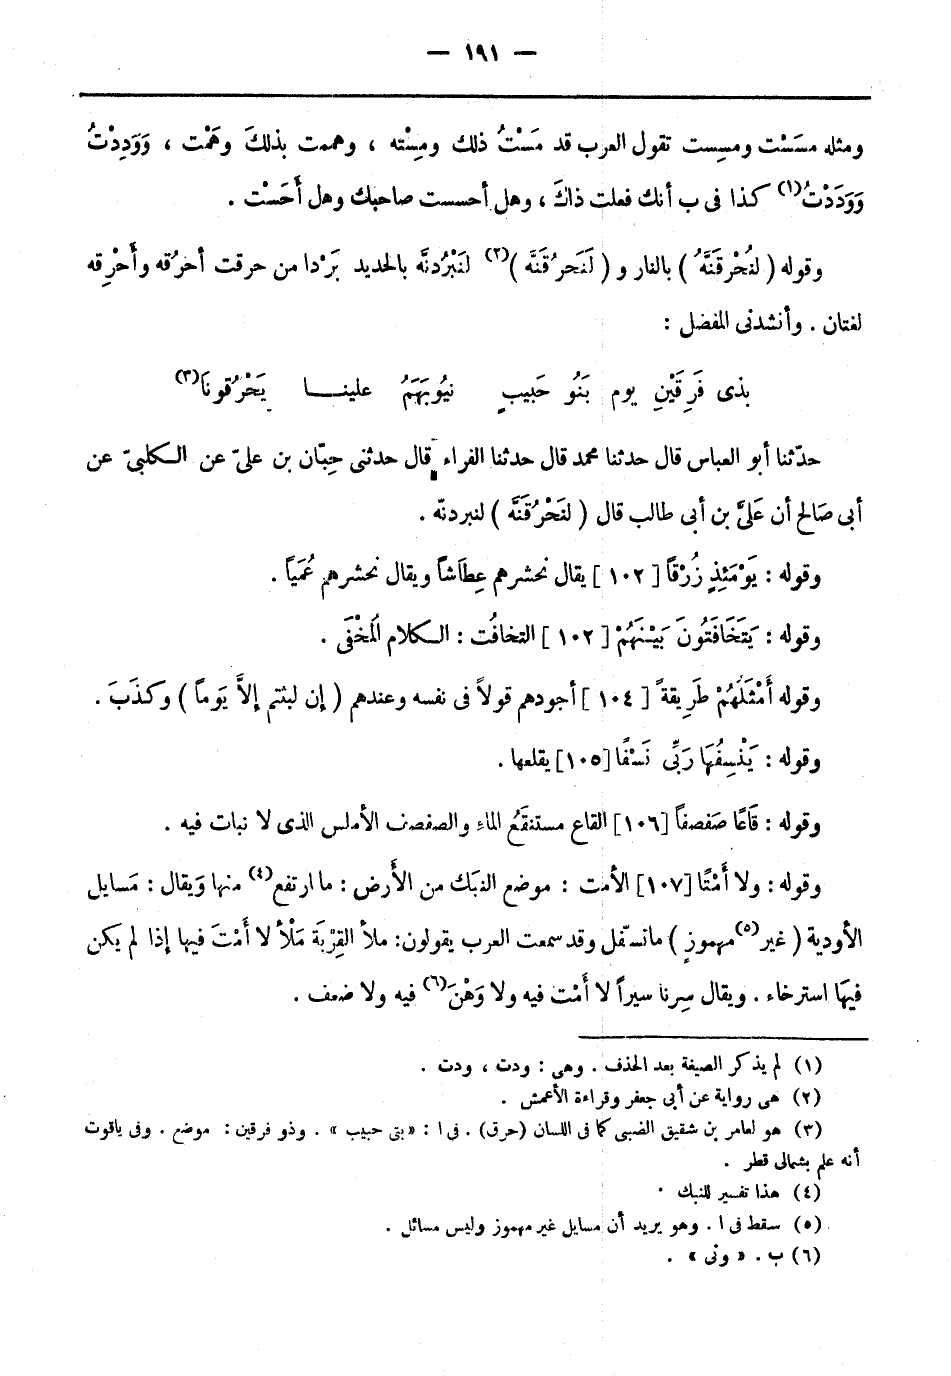 — ١٩١ —
ومثله مسَسْت ومسِست تقول العرب قد مَسْتُ ذلك ومِسْته ، وهممت بذلكَ وهَمْت ، وَوَدِدْتُ
وَوَدَدْتُ(١) كذا فى ب أنك فعلت ذاكَ ، وهل أحسست صاحبك وهل أَحَسْت .
وقوله ( لنُحْرِقَنَّهُ ) بالنار و ( لَنَحرُقَنَّه )(٢) لنَبْرُدنَّه بالحديد بَرْدا من حرقت أحرُقه وأَحْرِقه
لغتان . وأنشدنى المفضل :
بذى فَرِقَيْنِ يوم بَنُو حَبيبٍ نيُوبَهَمُ علينـــا يَحْرُقونَا(٣)
حدّثنا أبو العباس قال حدثنا محمد قال حدثنا الفراء قال حدثنى حِبّان بن علىّ عن الكلبىّ عن
أبى صَالح أن عَلىَّ بن أبى طالب قال ( لنَحْرُقَنَّه ) لنبردنّه .
وقوله : يَوْمَئِذٍ زُرْقاً [ ١٠٢ ] يقال نحشرهم عِطاَشاً ويقال نحشرهم عُمْياً .
وقوله : يَتَخَافَتُونَ بَيْنَهُمْ [ ١٠٢ ] التخافُت : الكلام المُخْفَى .
وقوله أَمْثَلُهُمْ طَرِيقةً [ ١٠٤ ] أجودهم قولاً فى نفسه وعندهم ( إن لبثتم إلاَّ يَوماً ) وكذَبَ .
وقوله : يَنْسِفُهَا رَبِّى نَسْفًا [١٠٥] يقلعها .
وقوله : قَاعًا صَفصفاً [١٠٦] القاع مستنقَعُ الماءِ والصفصف الأملس الذى لا نبات فيه .
وقوله : ولا أَمْتًا [١٠٧] الأمت : موضع النبَك من الأَرض : ما ارتفع(٤) منها وَيقال : مَسايل
الأودية ( غير(٥) مهموزٍ ) ماتسَفّل وقد سمعت العرب يقولون: ملأ القِرْبَة مَلْأً لا أَمْتَ فيها إذا لم يكن
فيهَا استرخاء . ويقال سِرنا سيراً لا أَمْت فيه ولا وَهْنَ(٦) فيه ولا ضعف .
(١) لم يذكر الصيغة بعد الحذف . وهى : ودت ، ودت .
(٢) هى رواية عن أبى جعفر وقراءة الأعمش .
(٣) هو لعامر بن شقيق الضبى كما فى اللسان (حرق) . فى ا : « بنى حبيب » . وذو فرقين : موضع . وفى ياقوت
أنه علم بشمالى قطر .
(٤) هذا تفسير للنبك .
(٥) سقط فى ا . وهو يريد أن مسايل غير مهموز وليس مسائل .
(٦) ب . « ونى » .